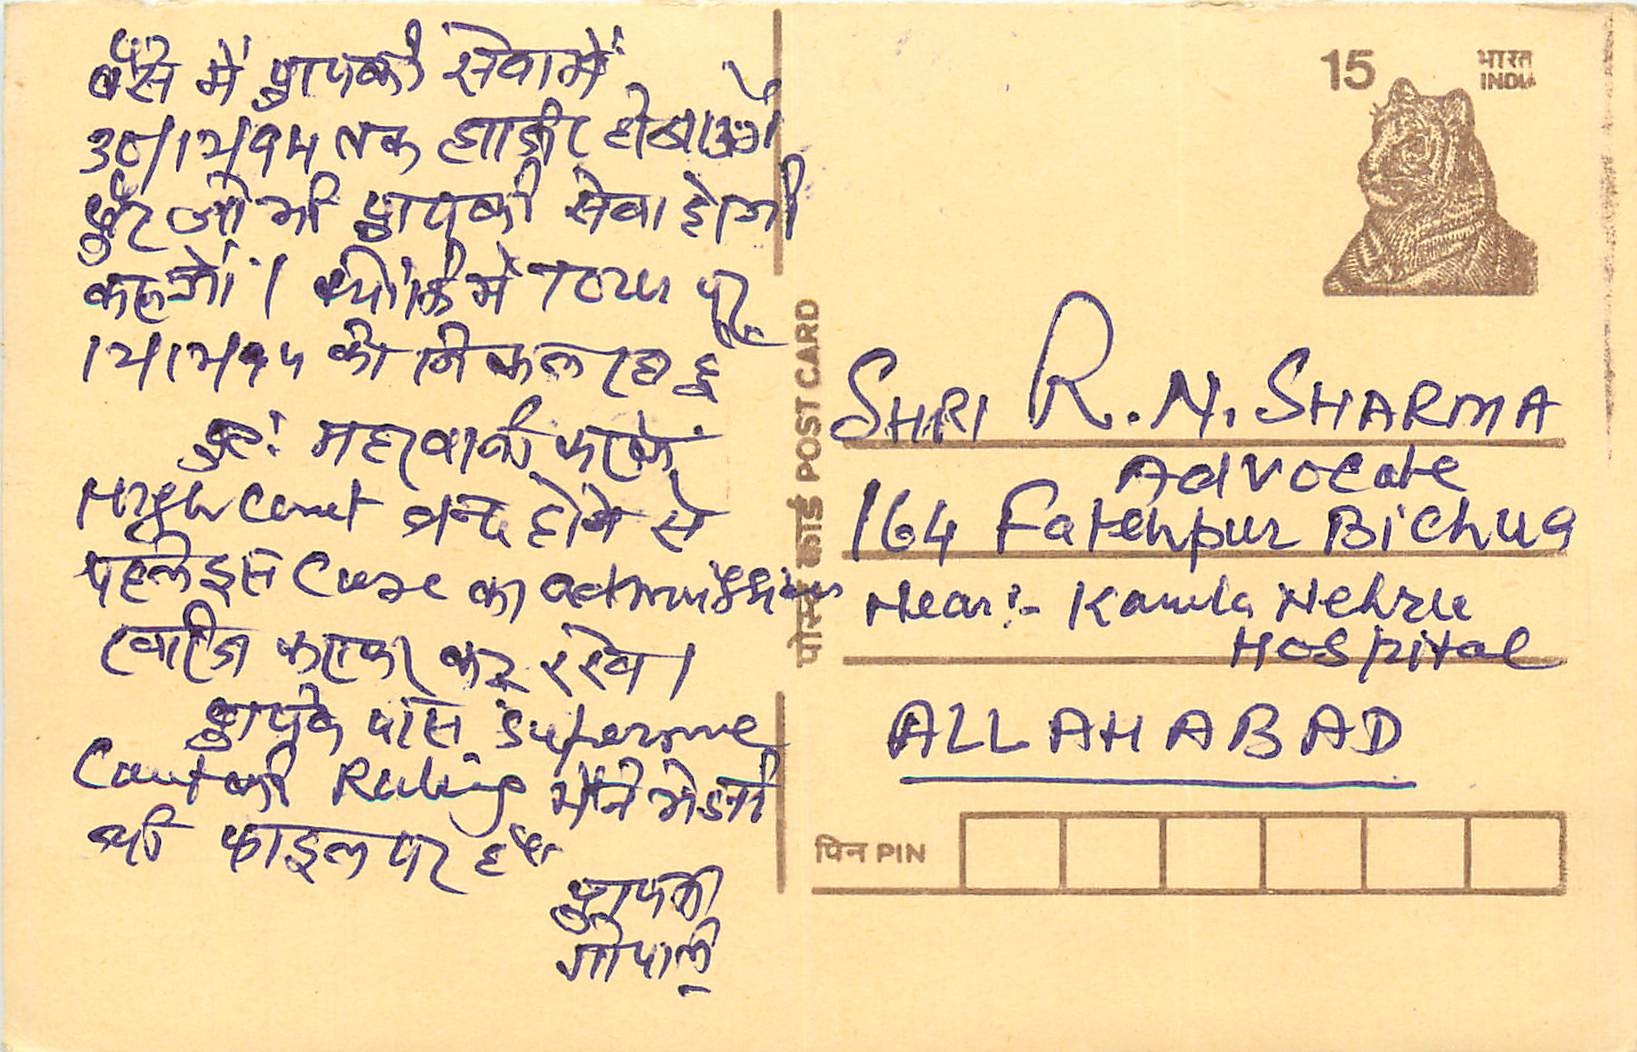 वैसे में आपकी सेवा में
30/12/94 तक हाजीर होजाऊंगा
और जो भी आपकी सेवा होगी
करूगां । क्योंकि में Tour पर
12/12/94 को निकल रहा हूँ
अतः महरबानी करके
High Court बन्द होने से
पहले इस Case का admission
खारीज कराकर कर रखे ।
आपके पास Superme
Court की Ruling मैंने भेजी
थी फाइल पर है
आपका
गोपाल
15 भारत
INDIA
पोस्ट कार्ड POST CARD
SHRI R. N. SHARMA
Advocate
164 Fatehpur Bichua
Near:- Kamla Nehru
Hospital
ALLAHABAD
पिन PIN